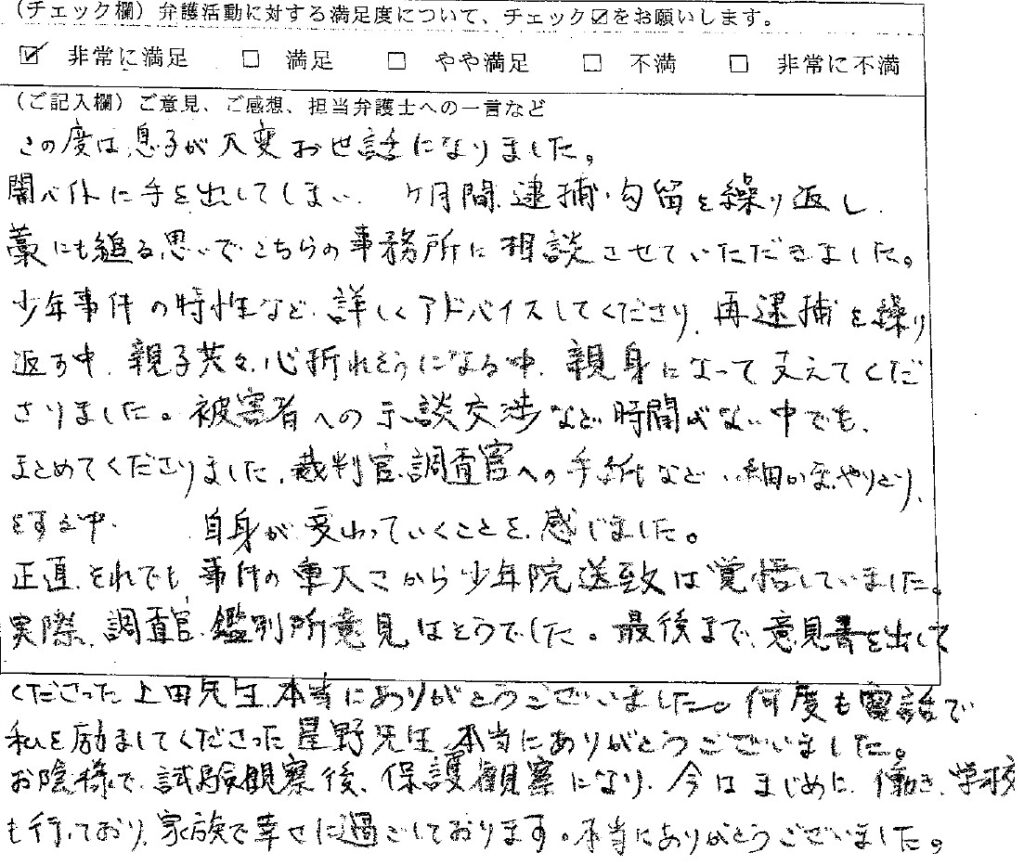 (チェック欄) 弁護活動に対する満足度について、チェック☑をお願いします。
☑ 非常に満足 □ 満足 □ やや満足 □ 不満 □ 非常に不満
(ご記入欄) ご意見、ご感想、担当弁護士への一言など
この度は、息子が大変お世話になりました。
闇バイトに手を出してしまい ヶ月間、逮捕・勾留を繰り返し、
藁にも縋る思いでこちらの事務所に相談させていただきました。
少年事件の特性など、詳しくアドバイスしてくださり、再逮捕を繰り
返す中、親子共々、心折れそうになる中、親身になって支えてくだ
さりました。被害者への示談交渉など時間がない中でも、
まとめてくださりました。裁判官、調査官への手紙など、細かなやりとり
をする中、 自身が変わっていくことを感じました。
正直、それでも事件の重大さから少年院送致は覚悟していました。
実際、調査官、鑑別所意見はそうでした。最後まで、意見書を出して
くださった上田先生、本当にありがとうございました。何度も電話で
私を励ましてくださった星野先生、本当にありがとうございました。
お陰様で、試験観察後、保護観察になり、今はまじめに働き、学校
も行っており、家族で幸せに過ごしております。本当にありがとうございました。